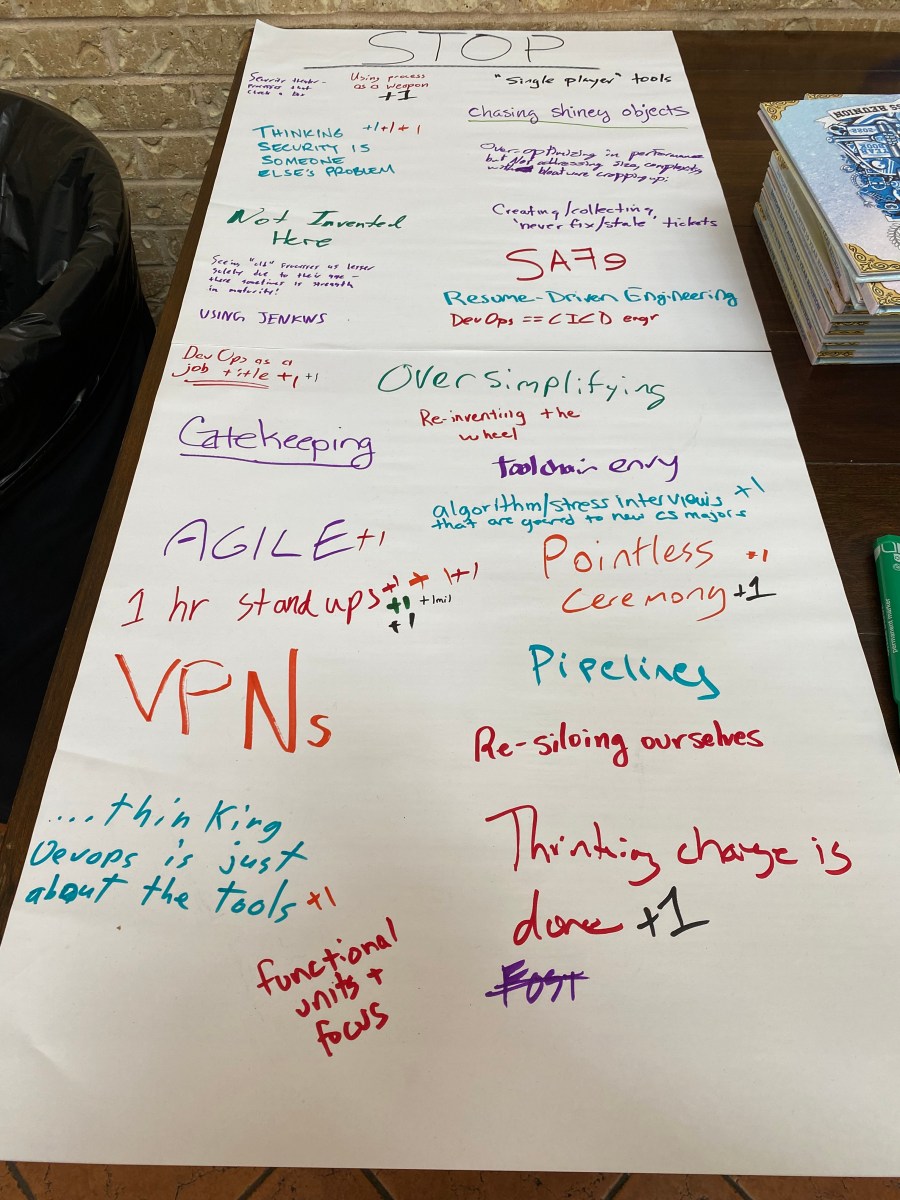 STOP
Security theater -
processes that
check a box
Using process
as a weapon
+1
"Single player" tools
chasing shiney objects
THINKING +1+1+1
SECURITY IS
SOMEONE
ELSE'S PROBLEM
Over-optimizing in performance
but Not addressing size, complexity
bloatware cropping up.
Not Invented
Here
Creating/collecting
'never fix/stale' tickets
Seeing "old" processes as lesser
solely due to their age -
there sometimes is strength
in maturity!
SAFe
Resume-Driven Engineering
USING JENKINS
DevOps == CICD engr
DevOps as a
job title +1 +1
Oversimplifying
Re-inventing the
wheel
Gatekeeping
toolchain envy
algorithm/stress interviews +1
that are geared to new CS majors
AGILE +1
Pointless +1
ceremony +1
1 hr standups +1 + 1+1
+1 +1mil
+1
VPNs
Pipelines
Re-siloing ourselves
....thinking
Devops is just
about the tools +1
Thinking change is
done +1
functional
units +
focus
REUNION
2022
permanent marker